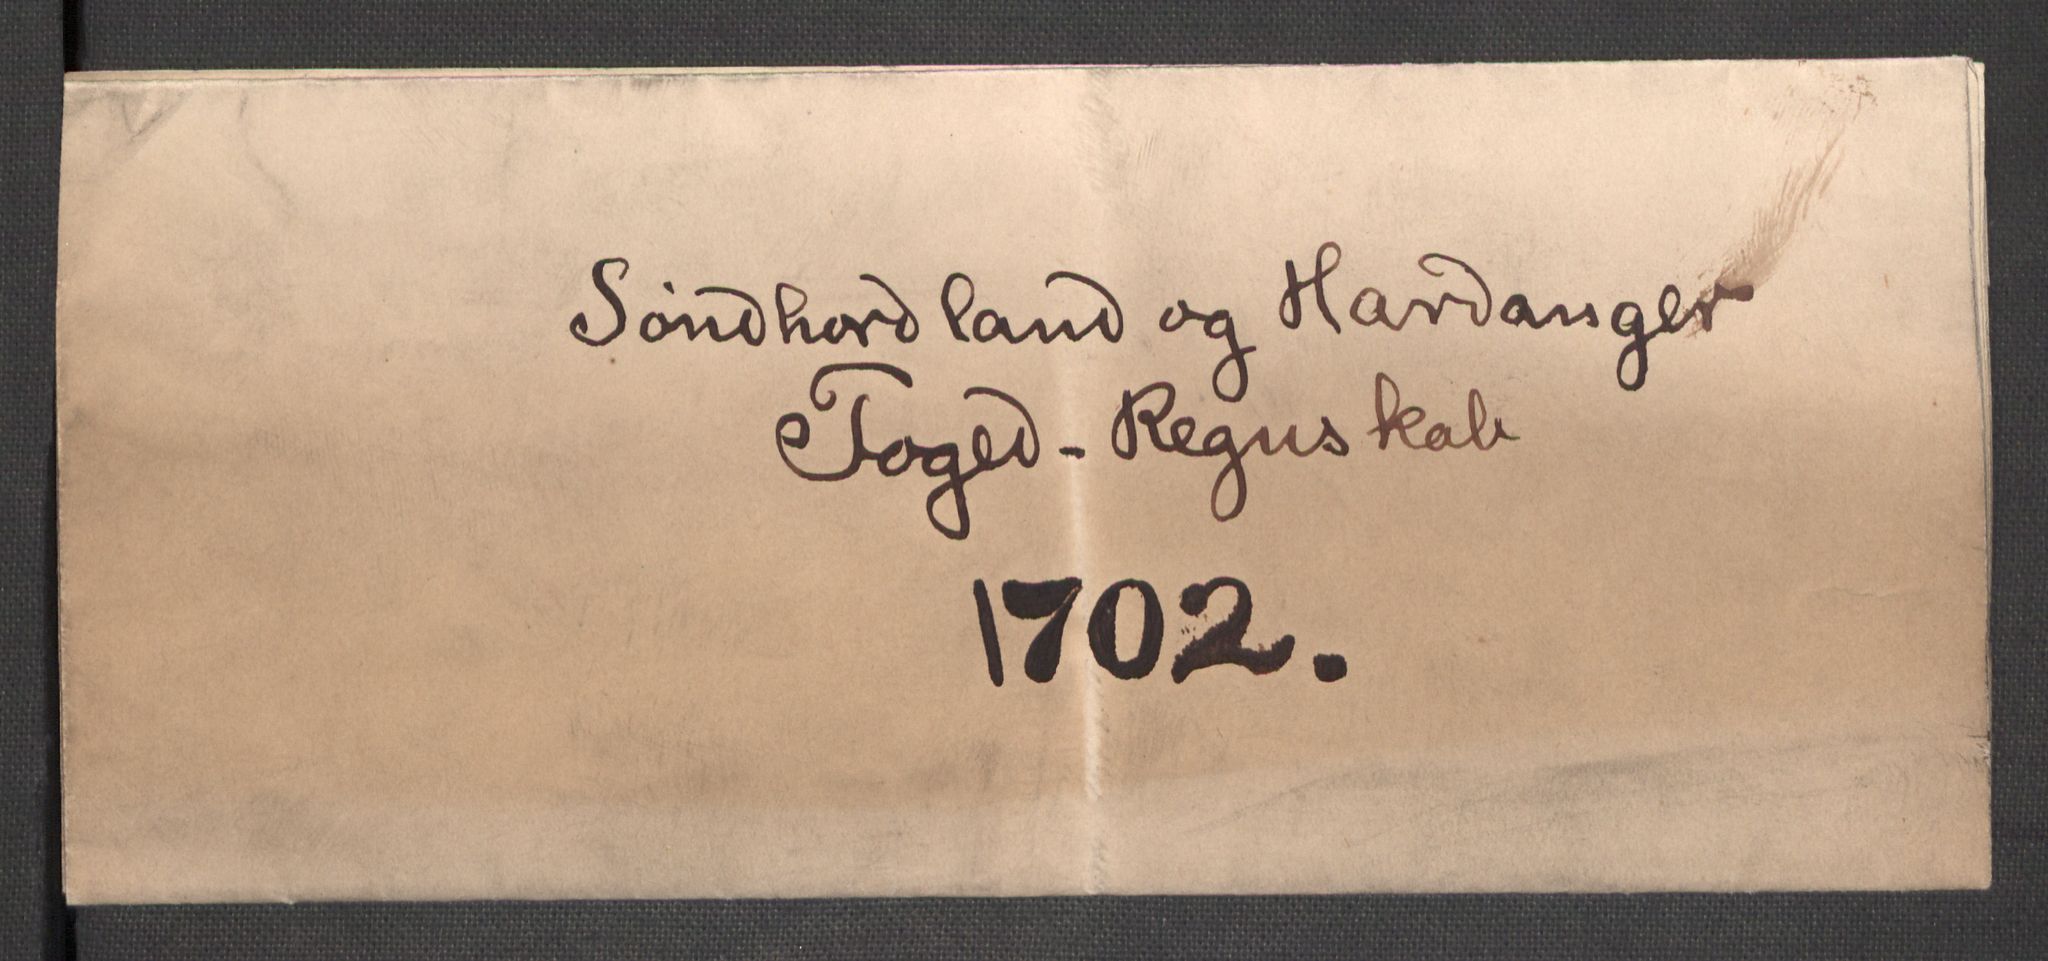 Søndhordland og Hardanger
Foged-Regnskab
1702.